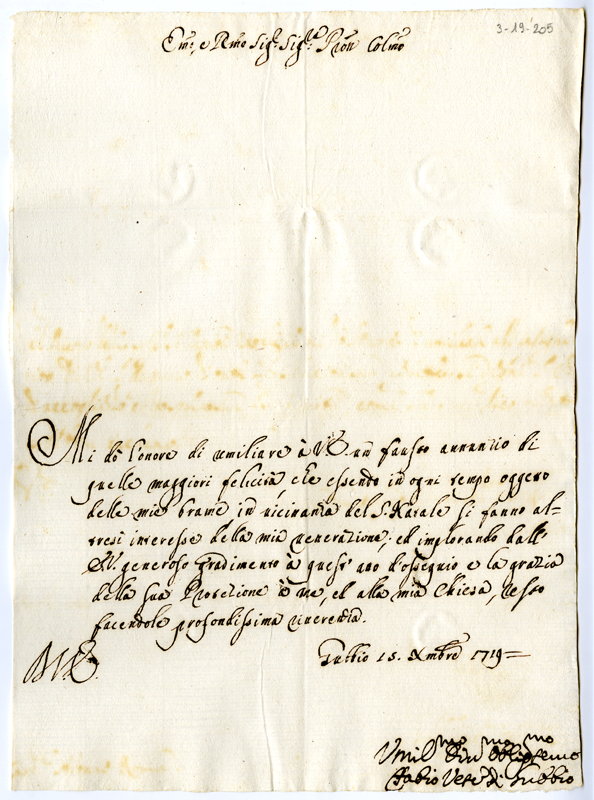 3-19-205
Em̃o, e Rm̃o Sig.r Sig.r Pron Colmo
Mi dò l'onore di umiliare à V.E. un fausto annunzio di
quelle maggiori felicità, che essendo in ogni tempo oggetto
delle mie brame in vicinanza del S. Natale si fanno al-
tresi interesse della mia venerazione; ed implorando dall'
E.V. generoso gradimento à quest' atto d'ossequio e la grazia
della sua Protezione à me, ed alla mia Chiesa, resto
facendole profondissima riverenza.
Gubbio 15. Xmbre 1719=
Umil.mo Div.mo Obligat.mo Servo
Fabio Vesc.o di Gubbio